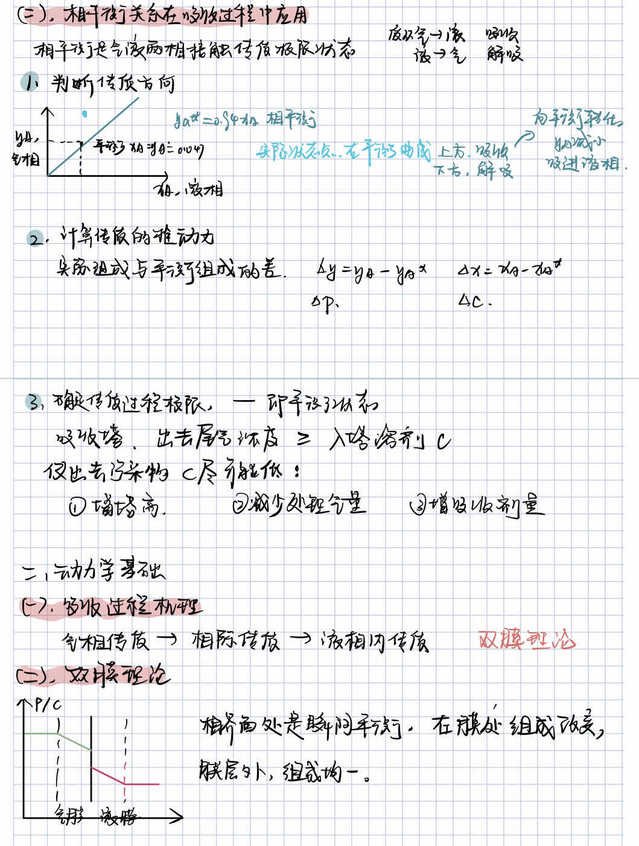 (二)、相平衡关系在吸收过程中应用
相平衡是气液两相接触传质极限状态
废从气→液 吸收
液→气 解吸
1、判断传质方向
yA*=0.94xA 相平衡
yA,
气相
平衡
xA,液相
实际状态点…在平衡曲线 上方,吸收
下方,解吸
向平衡转化,
yA减小
吸进液相.
2、计算传质的推动力
实际组成与平衡组成的差. Δy=yA-yA* Δx=xA-xA*
Δp. Δc.
3、确定传质过程极限,—即平衡状态
吸收塔,出去尾气浓度 ≥ 入塔溶剂C
使出去污染物C尽可能低:
①增塔高. ②减少处理气量 ③增吸收剂量
二、动力学基础
(一)、吸收过程机理
气相传质→相际传质→液相内传质 双膜理论
(二)、双膜理论
P/C
相界面处是瞬间平衡,在膜处组成改变,
膜层外,组成均一。
气膜 液膜